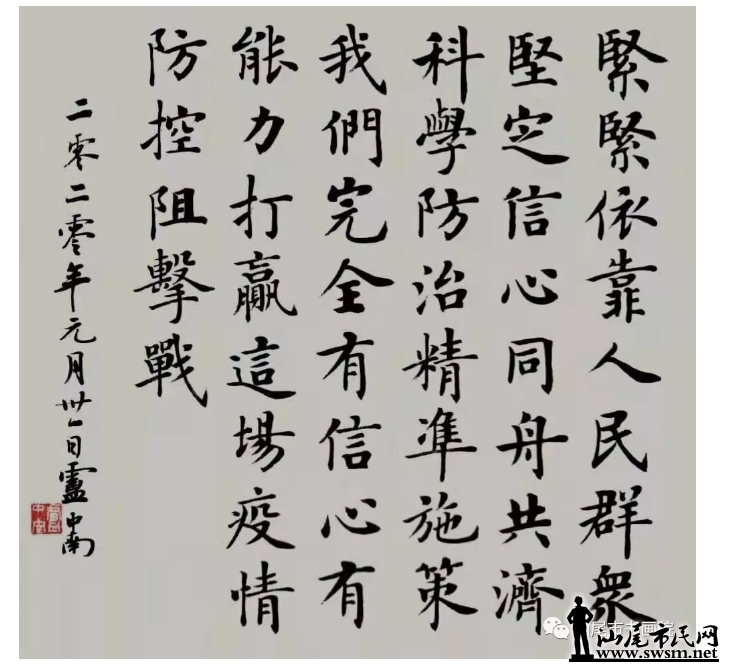 緊緊依靠人民群眾
堅定信心同舟共濟
科學防治精準施策
我們完全有信心有
能力打贏這場疫情
防控阻擊戰
二零二零年元月卅一日盧中南
汕尾市民网
www.swsm.net